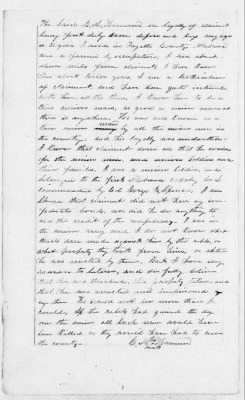 The said C. A. Thomason on loyalty of claimant
being first duly sworn deposes and says my age
is 40 years I reside in Fayette County Alabama
and a farmer by occupation, I live about
seven miles from claimant, I have known
him about twelve years I am a brother-in-law
of claimant, and have been quite intimate
with him all the time. I know him to be a
true union man, as good a union man as
there is anywhere. He was and known as a
true union man by all the union men in
the country, and his loyalty was undoubted
I know that claimant done all that he could
for the union men, and union soldiers and
their families. I was a union soldier, and
belonged to the first Alabama cavalry, U.S.
commanded by Col George E. Spencer. I am
sure that claimant did not own any con-
federate bonds, nor did he do anything to
aid the credit of the confederacy. I was in
the union army and I do not know what
threats were made against him by the rebels, or
what property they took from him, or whether
he was arrested by them, but I have every
reason to believe, and do fully believe
that he was threatened, his property taken, and
that he was arrested and imprisoned
by them. He could not do more than he
could, If the rebels had gained the day
one the union all such men would have
been killed or they would have had to leave
the country.
C. A. Thomason
mark